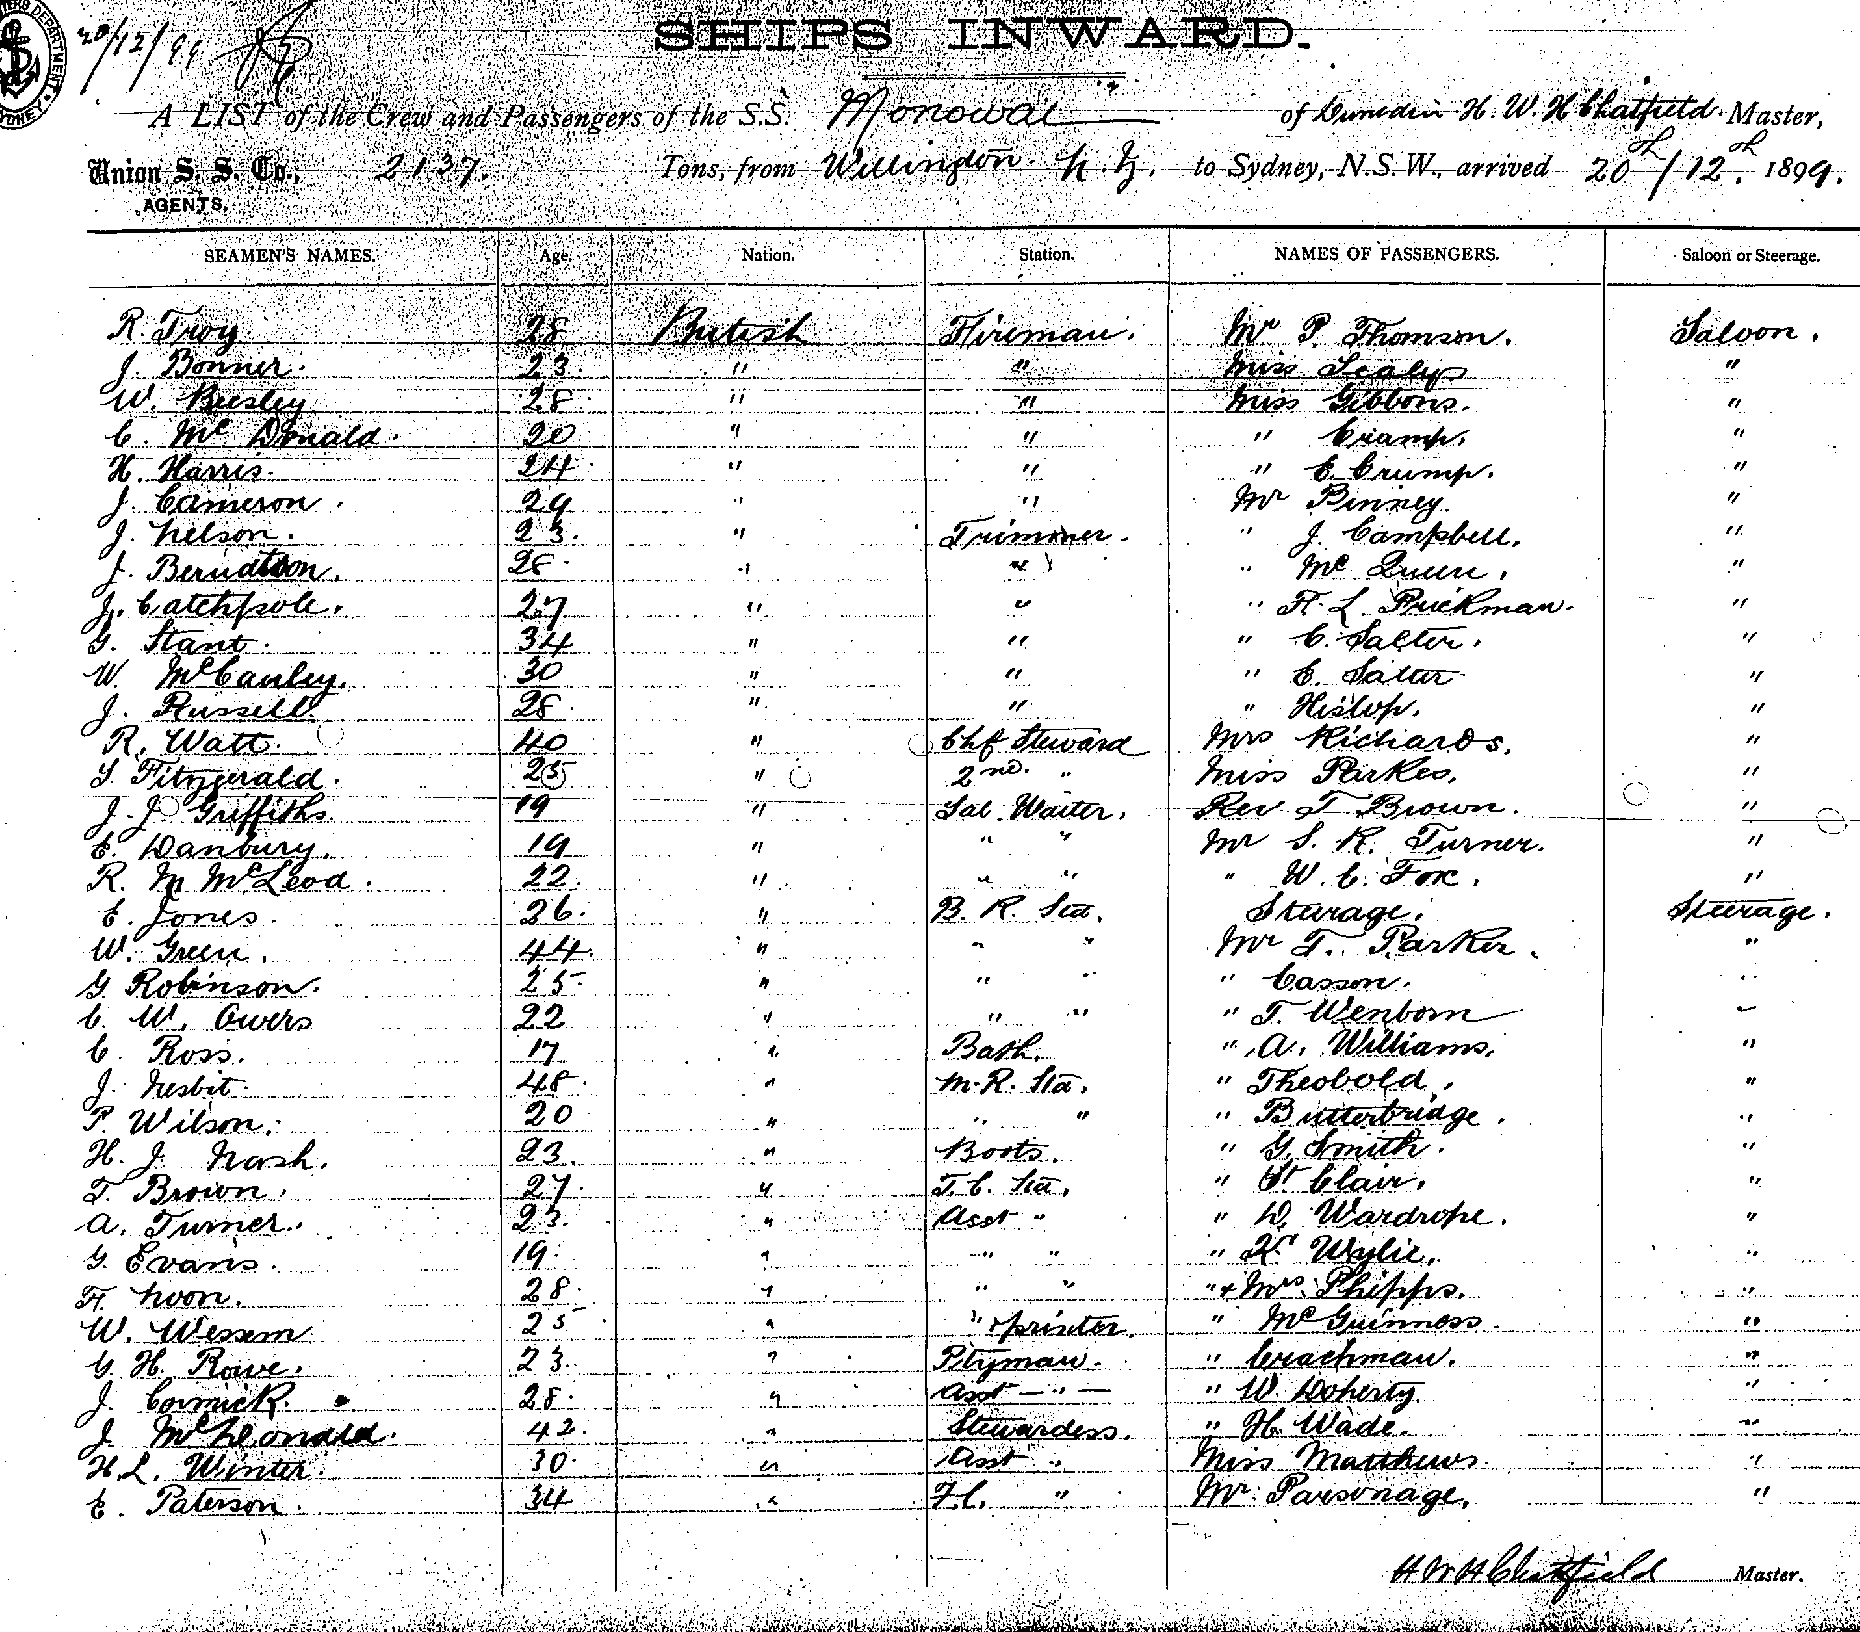 20/12/99
SHIPS INWARD.
A LIST of the Crew and Passengers of the S.S. Monowai of Dunedin H. W. H Chatfield Master,
Union S. S. Co., 2137. Tons, from Wellington N.Z. to Sydney, N.S.W., arrived 20th/12th 1899.
AGENTS.
SEAMEN'S NAMES. Age. Nation. Station. NAMES OF PASSENGERS. Saloon or Steerage.
R. Troy 28 British Fireman. Mr P. Thomson. Saloon.
J. Bonner. 23 " " Miss Sealys "
W. Beesley 28 " " Miss Gibbons. "
C. McDonald. 20 " " " Cramp. "
H. Harris. 24 " " " E. Crump. "
J. Cameron. 29 " " Mr Binney. "
J. Nelson. 23. " Trimmer. " J. Campbell. "
J. Berndtson. 28. " " " McQueen. "
J. Catchpole. 27 " " " H. L. Prickman. "
G. Stant. 34 " " " C. Salter. "
W. McCauley. 30 " " " E. Salter "
J. Russell. 28. " " " Hislop. "
R. Watt. 40 " Chf Steward Mrs Richards. "
G. Fitzgerald. 25 " 2nd. " Miss Parkes. "
J. J. Griffiths. 19 " Sal. Waiter. Rev T Brown. "
E. Danbury. 19 " " " Mr S. R. Turner. "
R. M McLeod. 22. " " " " W. C. Fox. "
E. Jones. 26. " B. R. Std. Steerage. Steerage.
W. Green. 44. " " " Mr T. Parker. "
G Robinson. 25. " " " " Casson. "
C. W. Owers 22 " " " " T. Wenborn "
C. Ross. 17 " Bath. " A. Williams. "
J. Nesbit. 48. " M. R. Std. " Theobold. "
P. Wilson. 20 " " " " Butterbridge. "
H. J. Nash. 23. " Boots. " G. Smith. "
T. Brown. 27. " T. C. Std. " St Clair. "
A. Turner. 23. " Asst " " D. Wardrope. "
G. Evans. 19. " " " " Dr Wylie. "
H. Noon. 28. " " " " & Mrs Phipps. "
W. Wessem 25 " " & printer. " McGuinness. "
G. H. Rowe. 23. " Ptyman. " Crachman. "
J. Cormick. 28. " Asst — " — " W. Doherty. "
J. McDonald. 42. " Stewardess. " H. Wade. "
H. L. Winter. 30. " Asst " Miss Matthews. "
E. Paterson. 34 " F.C. " Mr. Parsonage. "
H W H Chatfield Master.